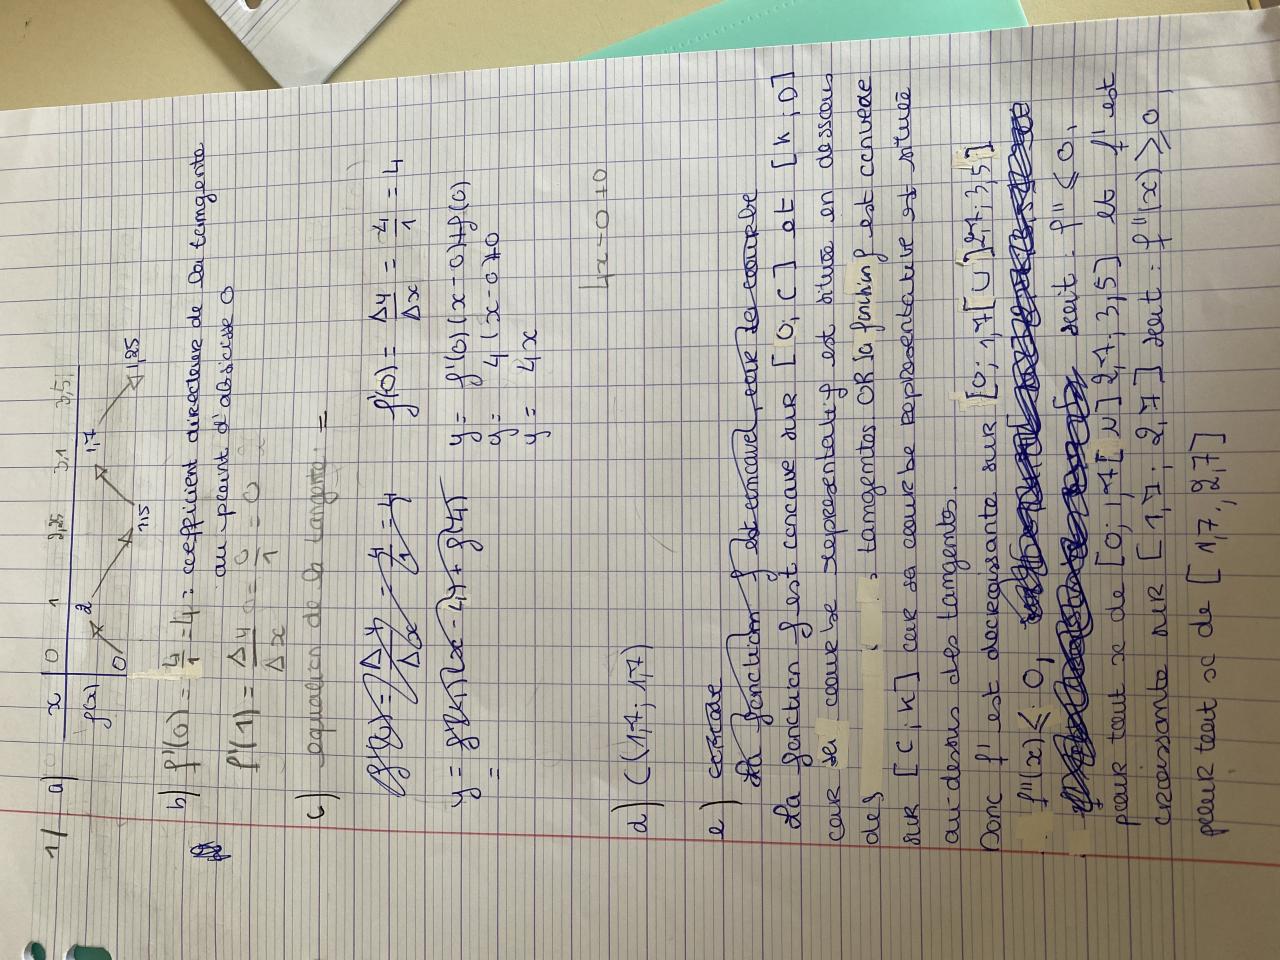 1/ a) x | 0 1 2,25 3,1 3,5
f(x) | 0 2 1,15 1,7 1,25
b) f'(0) = 4/1 = 4 = coefficient directeur de la tangente
au point d'abscisse 0
f'(1) = Δy/Δx = 0/1 = 0
c) equation de la tangente =
f'(0) = Δy/Δx = 4/1 = 4
y = f'(0)(x - 0) + f(0)
y = 4(x - 0) + 0
y = 4x
4x - 0 + 0
d) C(1,7 ; 1,7)
e) concave
La fonction f est concave car sa courbe
La fonction f est concave sur [0; C] et [K; D]
car sa courbe representatif est située en dessous
des tangentes. OR la fonction f est convexe
sur [C; K] car sa courbe representative est située
au-dessus des tangentes.
Donc f' est decroissante sur [0; 1,7[ U ]2,7; 3,5]
f''(x) ≤ 0, soit : f'' ≤ 0,
pour tout x de [0; 1,7[ U ]2,7; 3,5] et f' est
croissante sur [1,7; 2,7] soit : f''(x) ≥ 0,
pour tout x de [1,7; 2,7]